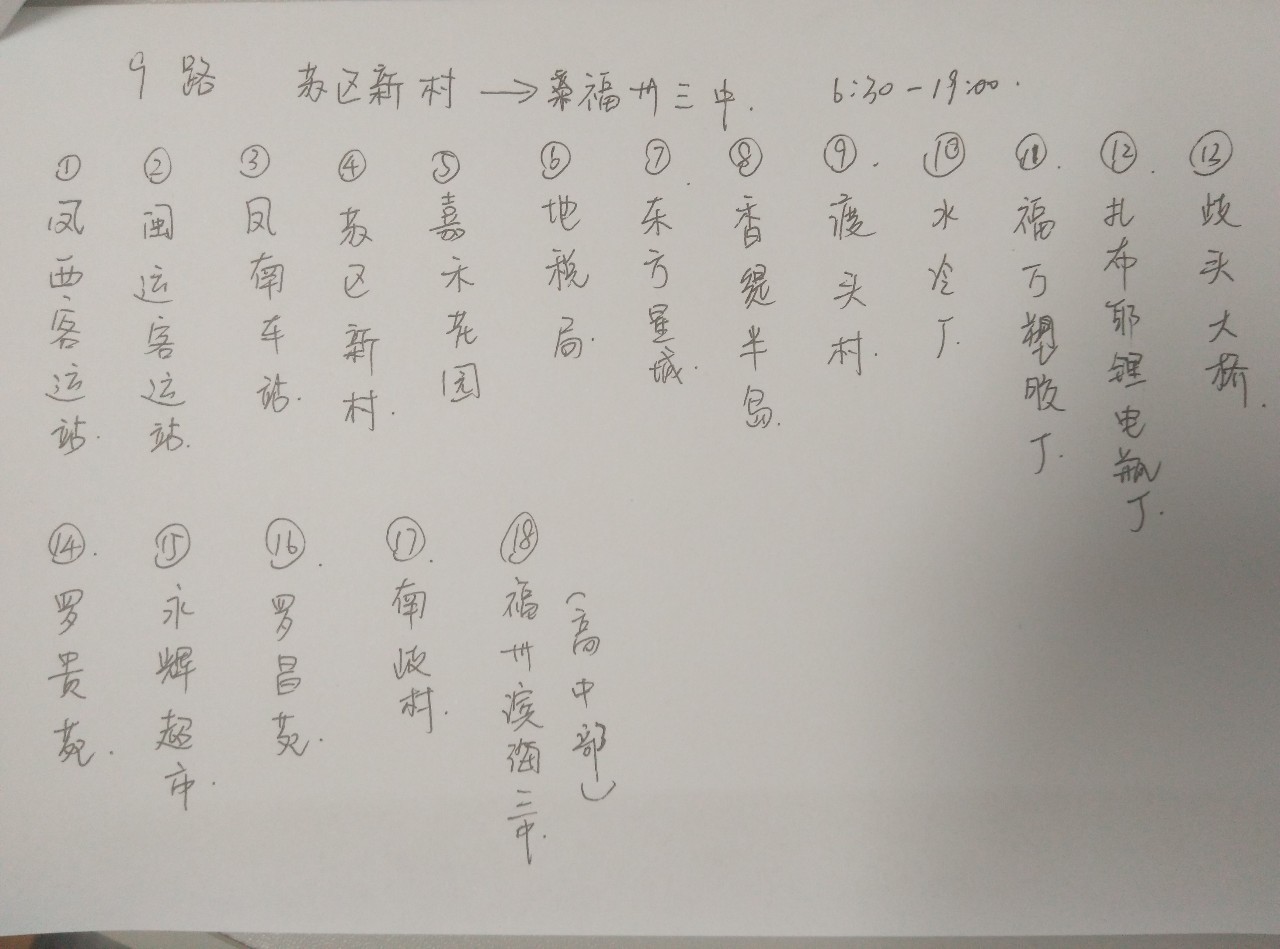 9路 苏区新村 → 福州三中. 6:30-19:00.
① 凤西客运站.
② 闽运客运站.
③ 凤南车站.
④ 苏区新村.
⑤ 嘉禾花园
⑥ 地税局.
⑦ 东方星城.
⑧ 香缇半岛.
⑨. 渡头村.
⑩ 水冷厂.
⑪. 福万塑胶厂.
⑫. 扎布耶锂电瓶厂.
⑬ 岐头大桥.
⑭. 罗贵苑.
⑮ 永辉超市.
⑯. 罗昌苑.
⑰. 南岐村.
⑱ 福州滨海三中.
(高中部)